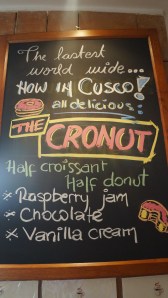 The lastest
world wide...
NOW IN CUSCO!
all delicious
THE CRONUT
Half croissant
Half donut
* Raspberry jam
* Chocolate
* Vanilla cream